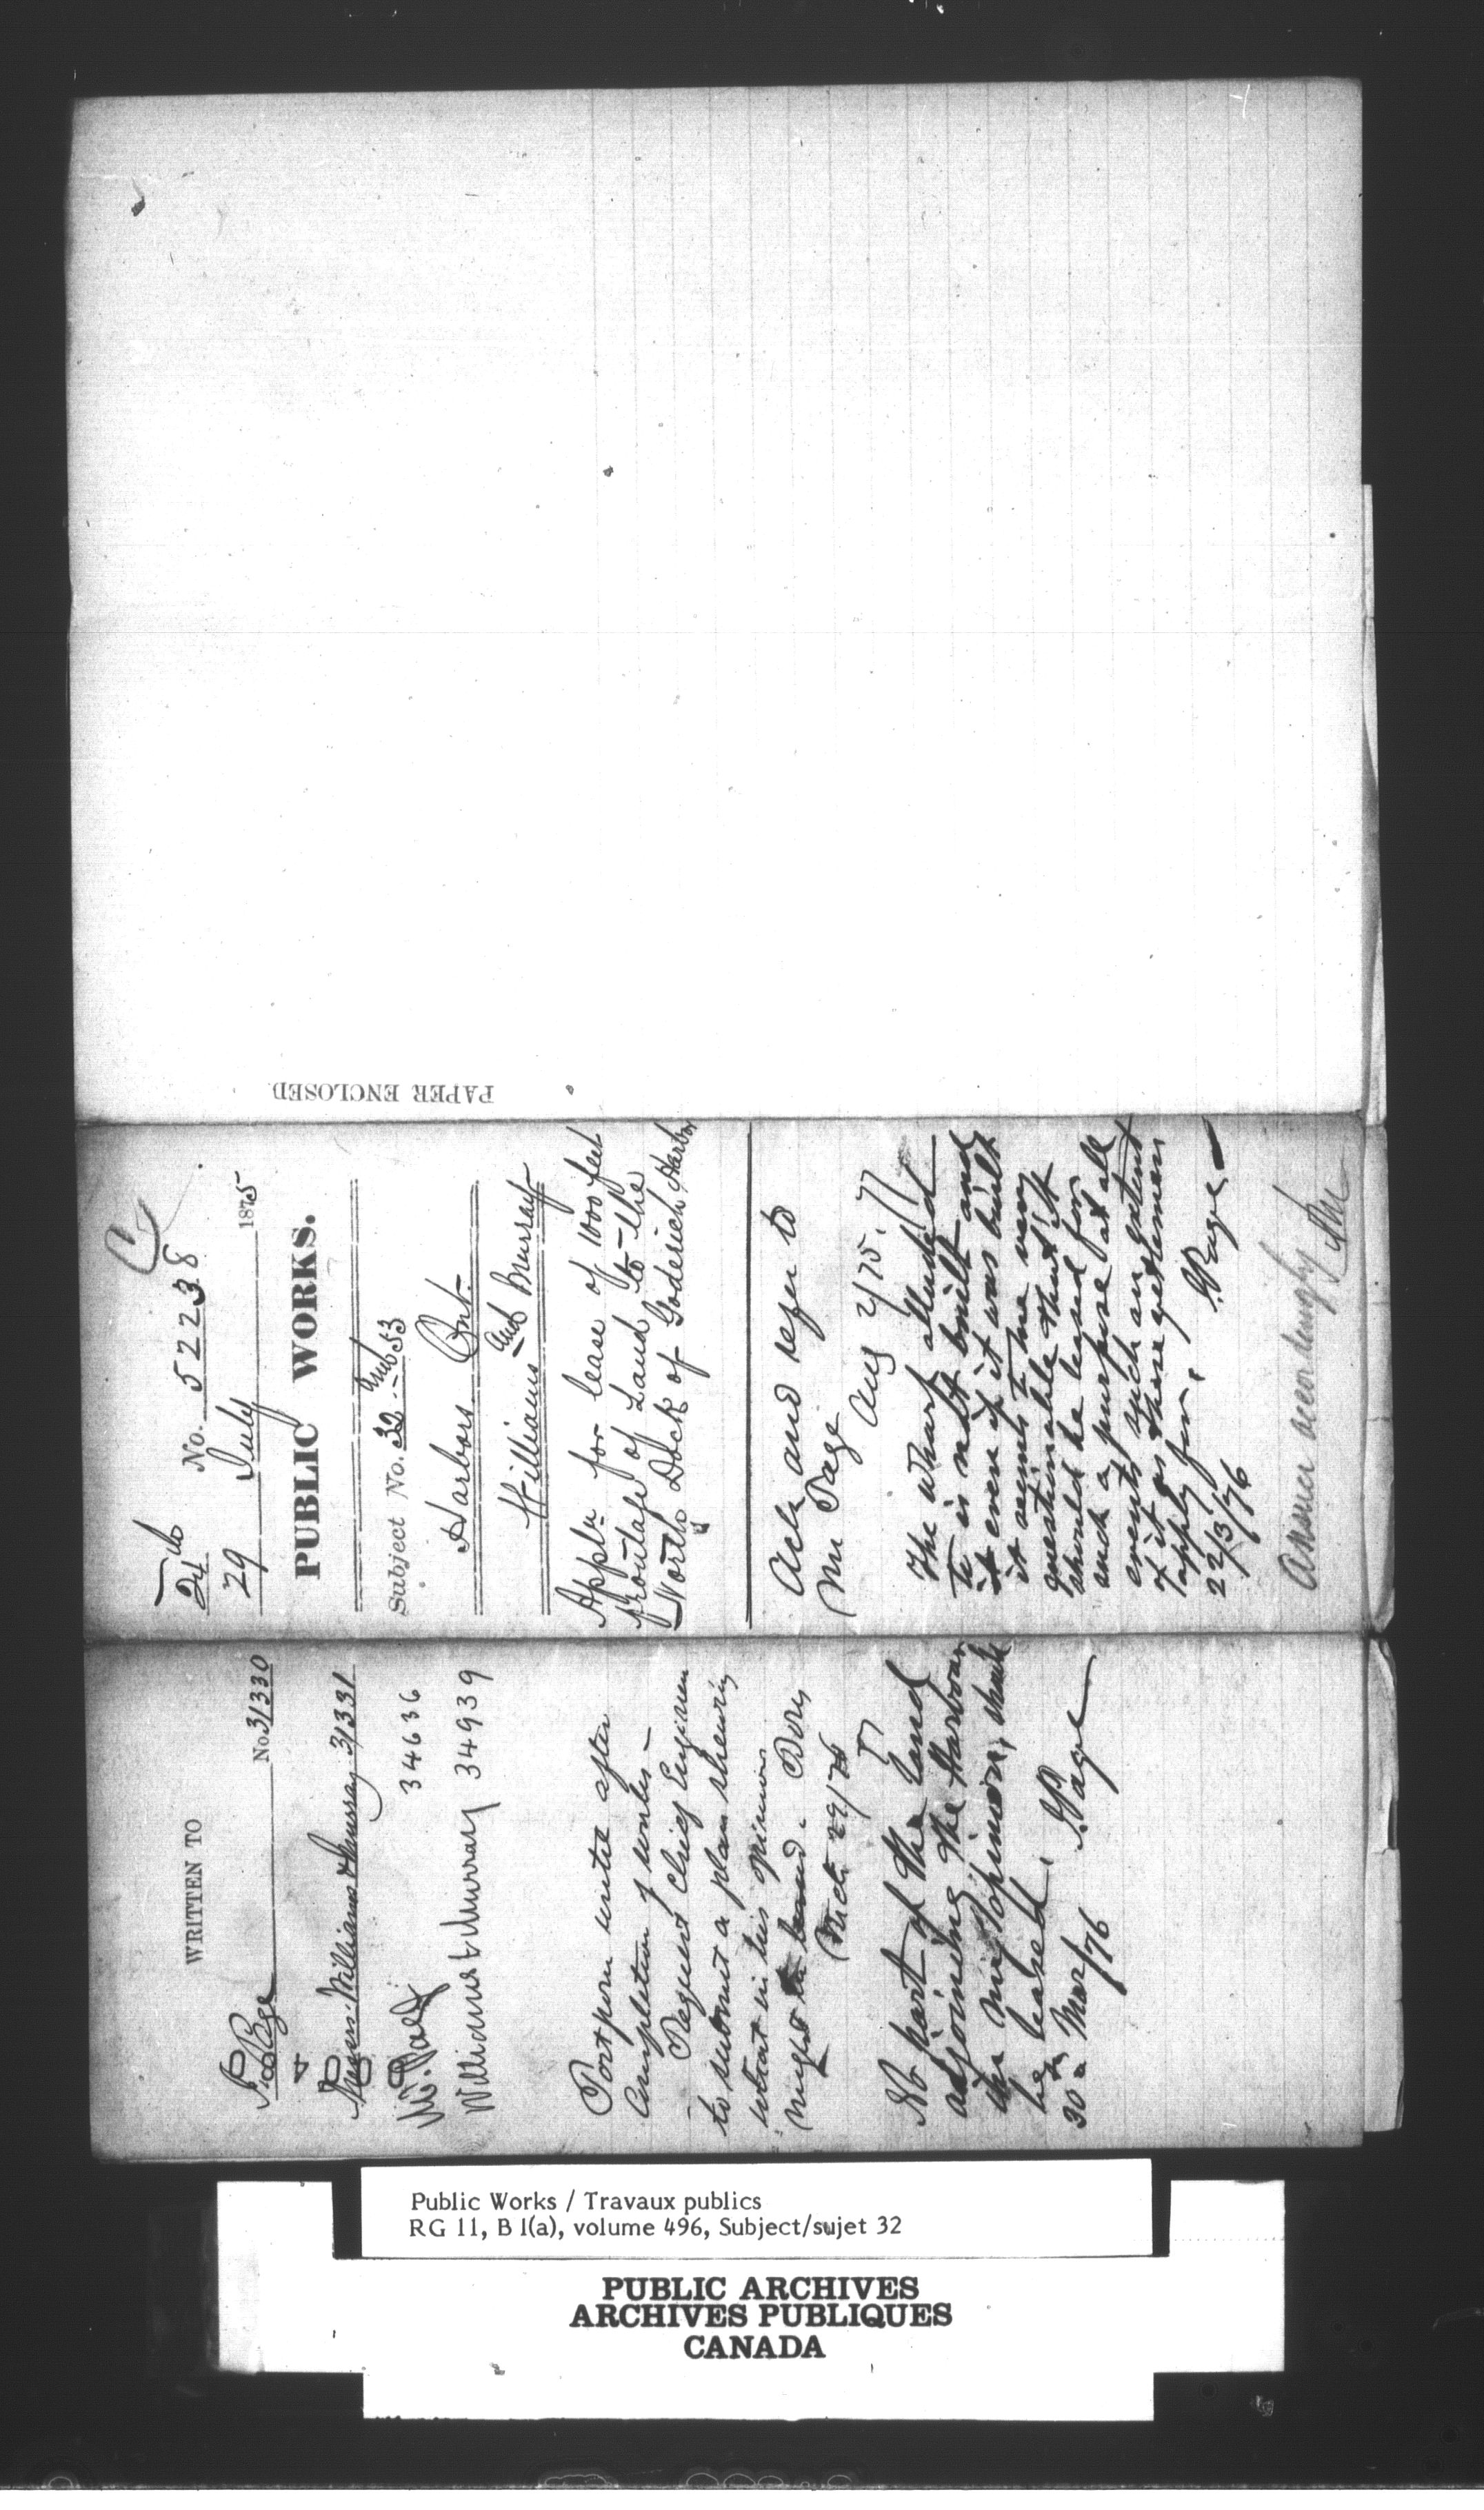 WRITTEN TO
J. Page No. 31330
Messrs Williams & Murray 31331
34636
Williams & Murray 34939
Postpone until after
completion of works –
Request Chief Engineer
to submit a plan shewing
what in his opinion
might be
Mch 29/76
No part of the land
adjoining the Harbour
in my opinion, should
be leased. J. Page
30th Mar/76
24
No. 52238
29 July 1875
PUBLIC WORKS.
Subject No. 32 and 53
Harbors Ont.
Williams and Murray
Appln for lease of 1000 feet
frontage of Land to the
North Dock of Goderich Harbor
Ack and refer to
Mr Page
Aug 2/75.
The wharf alluded
to is not built and
even if it was built
it seems to me very
questionable that it
should be leased for
such a purpose at all
events such an extent
of it as these gentlemen
apply for. J. Page
22/3/76
Answer accordingly
PAPER ENCLOSED.
Public Works / Travaux publics
RG 11, B 1(a), volume 496, Subject/sujet 32
PUBLIC ARCHIVES
ARCHIVES PUBLIQUES
CANADA